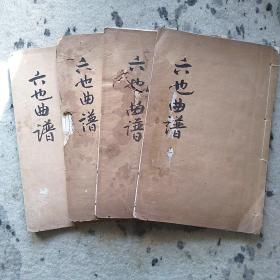 六也曲谱
六也曲谱
六也曲谱
六也曲谱